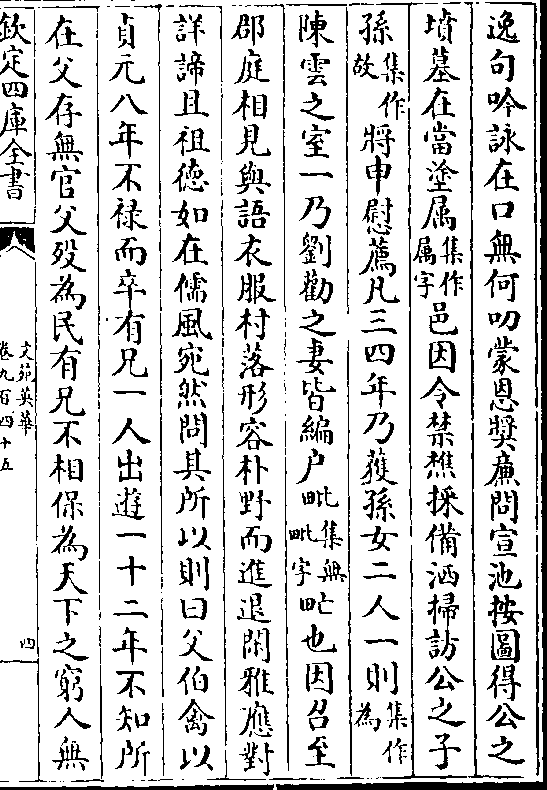 逸句吟詠在口無何叨蒙恩奬廉問宣池按圖得公之
墳墓在當塗属集作属字邑因令禁樵採備洒掃訪公之子
孫集作故將申慰薦凡三四年乃獲孫女二人一則集作為
陳雲之室一乃劉勸之妻皆編户毗集無毗字甿也因召至
郡庭相見與語衣服村落形容朴野而進退閑雅應對
詳諦且祖徳如在儒風宛然問其所以則曰父伯禽以
貞元八年不禄而卒有兄一人出遊一十二年不知所
在父存無官父殁為民有兄不相保為天下之窮人無
欽定四庫全書
文苑英華
卷九百四十五
四